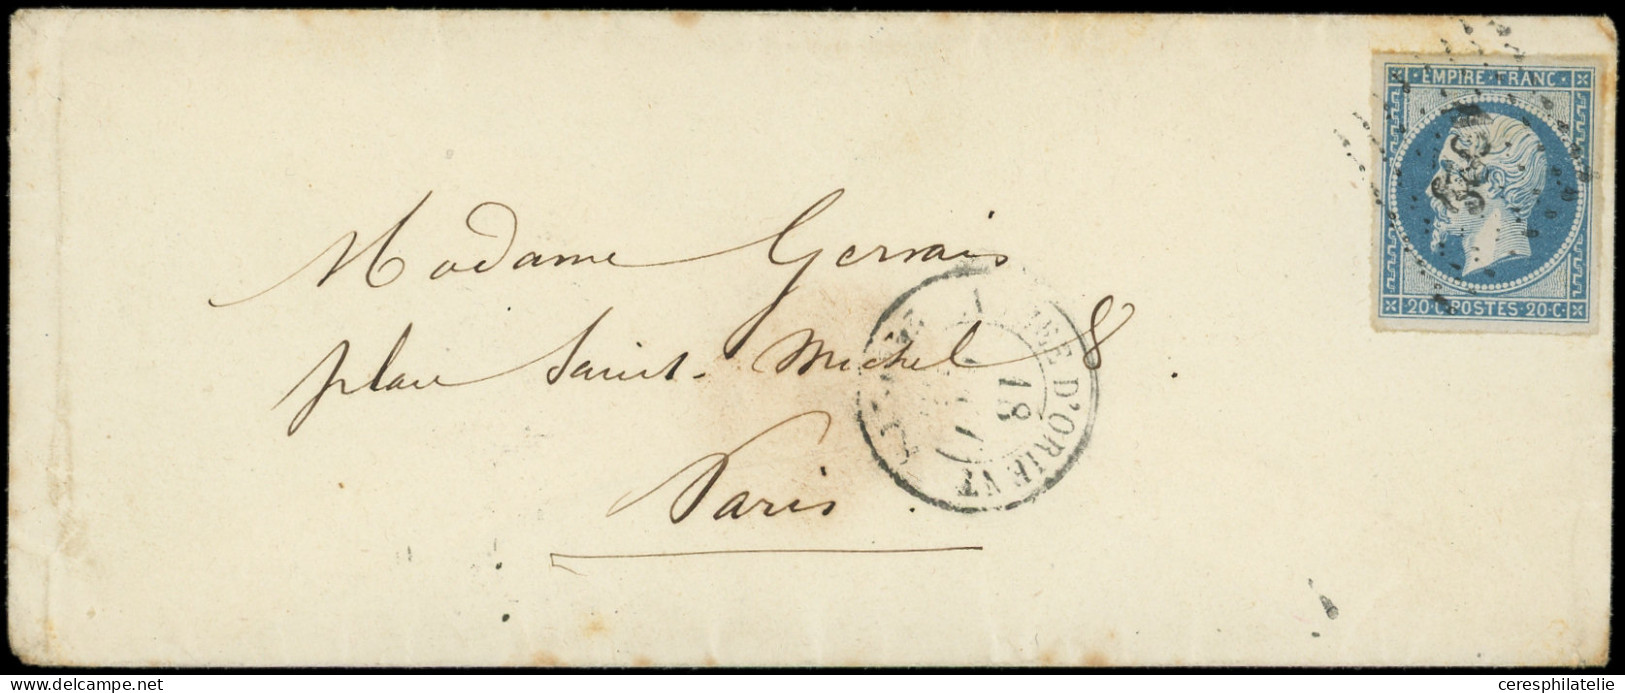 EMPIRE · FRANC ·
20·C·POSTES·20·C·
Madame Gervais
place Saint-Michel 8.
Paris
D'ORIENT
18
delcampe.net
ceresphilatelie